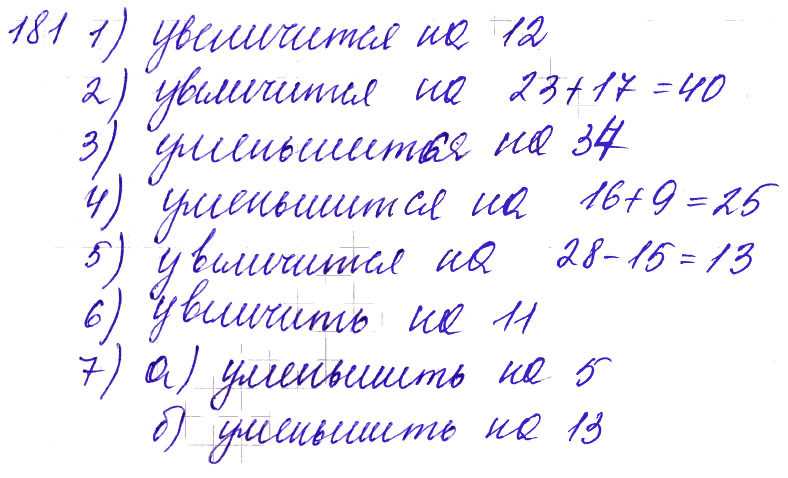 181 1) увеличится на 12
2) увеличится на 23+17=40
3) уменьшится на 34
4) уменьшится на 16+9=25
5) увеличится на 28-15=13
6) увеличить на 11
7) а) уменьшить на 5
б) уменьшить на 13